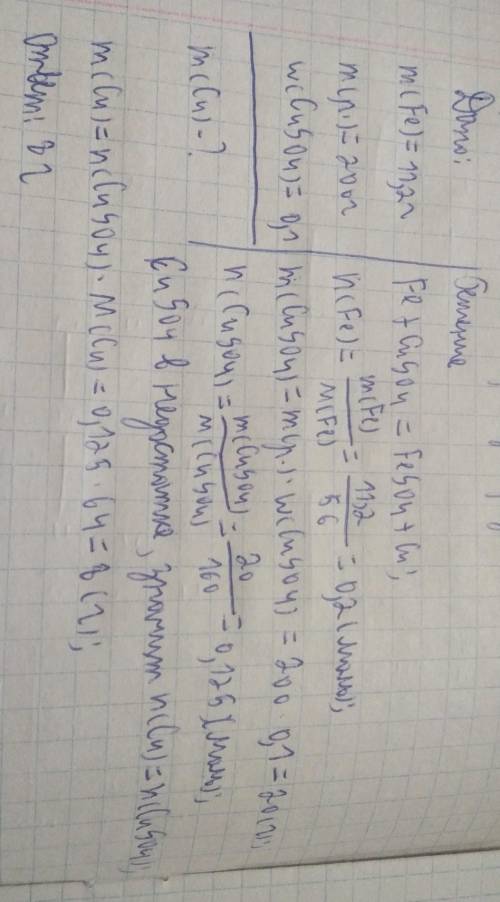 Дано:
m(Fe) = 11,2г
m(р.) = 200г
w(CuSO4) = 0,1
m(Cu) - ?
Решение
Fe + CuSO4 = FeSO4 + Cu;
n(Fe) = m(Fe) / M(Fe) = 11,2 / 56 = 0,2 (моль);
m(CuSO4) = m(р.) · w(CuSO4) = 200 · 0,1 = 20(г);
n(CuSO4) = m(CuSO4) / M(CuSO4) = 20 / 160 = 0,125 (моль);
CuSO4 в недостатке, значит n(Cu) = n(CuSO4);
m(Cu) = n(CuSO4) · M(Cu) = 0,125 · 64 = 8 (г);
Ответ: 8г